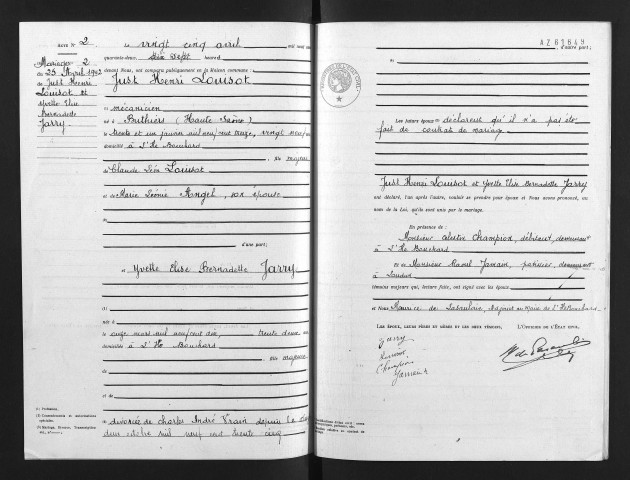 ACTE N° 2
Mariage 2
du
25 Avril 1942
de Just Henri
Louisot et
Yvette Elise
Bernadette
Jarry
Le vingt cinq avril mil neuf cent
quarante-deux, dix sept heures
devant Nous, ont comparu publiquement en la Maison commune :
Just Henri Louisot
(1) mécanicien
né à Buthiers (Haute Saône)
le trente et un janvier mil neuf cent treize, vingt neuf ans
domicilié à L'Ile Bouchard
, fils majeur
de Claude Léon Louisot
et de Marie Léonie Angel, son épouse
de
d'une part;
et Yvette Elise Bernadette Jarry
(1)
née à
le onze mars mil neuf cent dix, trente deux ans
domiciliée à L'Ile Bouchard
fille majeure
de
et de
divorcée de Charles André Vrain depuis le
deux octobre mil neuf cent trente cinq
(1) Profession.
(2) Consentements et autorisations
spéciales.
AZ61649
, d'autre part;
(2)
Les futurs époux déclarent qu'il n'a pas été
fait de contrat de mariage
Just Henri Louisot et Yvette Elise Bernadette Jarry
ont déclaré, l'un après l'autre, vouloir se prendre pour époux et Nous avons prononcé, au
nom de la Loi, qu'ils sont unis par le mariage.
En présence de :
Monsieur Champion, débitant, demeurant
à L'Ile Bouchard
et de Monsieur Raoul, demeurant
à Loudun
témoins majeurs qui, lecture faite, ont signé avec les époux
et Nous Maurice de, adjoint au Maire de L'Ile Bouchard
LES ÉPOUX, LEURS PÈRES ET MÈRES ET LES DEUX TÉMOINS,
L'OFFICIER DE L'ÉTAT CIVIL,
Yjarry
Louisot
Champion